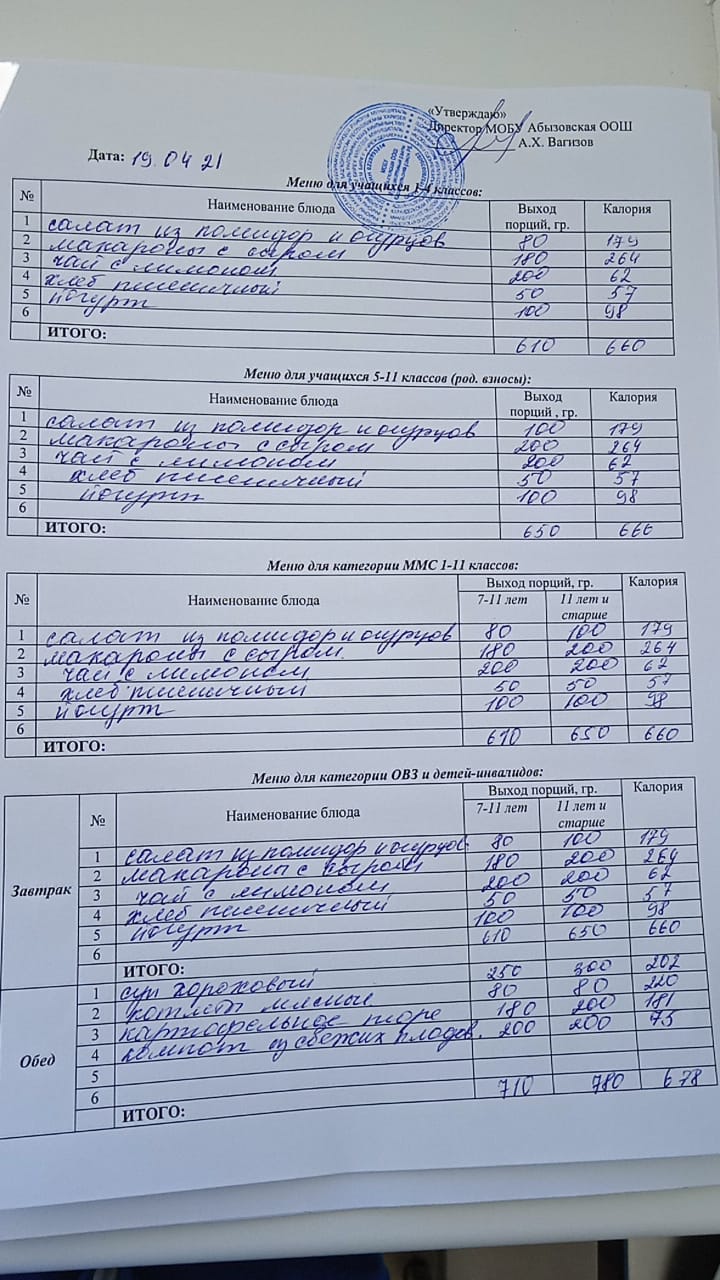 «Утверждаю»
Директор МОБУ Абызовская ООШ
А.Х. Вагизов
Дата: 19.04 21
Меню для учащихся 1-4 классов:
№ Наименование блюда Выход порций, гр. Калория
1 салат из помидор и огурцов 80 179
2 макароны с сыром 180 264
3 чай с лимоном 200 62
4 хлеб пшеничный 50 57
5 йогурт 100 98
6
ИТОГО: 610 660
Меню для учащихся 5-11 классов (род. взносы):
№ Наименование блюда Выход порций , гр. Калория
1 салат из помидор и огурцов 100 179
2 макароны с сыром 200 264
3 чай с лимоном 200 62
4 хлеб пшеничный 50 57
5 йогурт 100 98
6
ИТОГО: 650 666
Меню для категории ММС 1-11 классов:
№ Наименование блюда Выход порций, гр. Калория
7-11 лет 11 лет и старше
1 салат из помидор и огурцов 80 100 179
2 макароны с сыром. 180 200 264
3 чай с лимоном 200 200 62
4 хлеб пшеничный 50 50 57
5 йогурт 100 100 98
6
ИТОГО: 610 650 660
Меню для категории ОВЗ и детей-инвалидов:
№ Наименование блюда Выход порций, гр. Калория
7-11 лет 11 лет и старше
Завтрак
1 салат из помидор и огурцов 80 100 179
2 макароны с сыром 180 200 264
3 чай с лимоном 200 200 62
4 хлеб пшеничный 50 50 57
5 йогурт 100 100 98
6 610 650 660
ИТОГО:
Обед
1 суп гороховый 250 300 202
2 котлеты мясные 80 80 220
3 картофельное пюре 180 200 181
4 компот из свежих плодов. 200 200 75
5
6 710 780 678
ИТОГО: